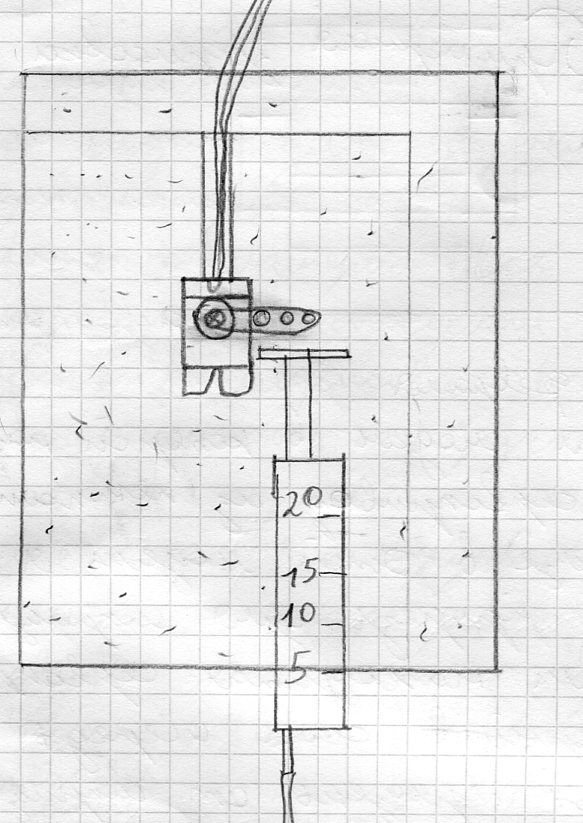 20
15
10
5